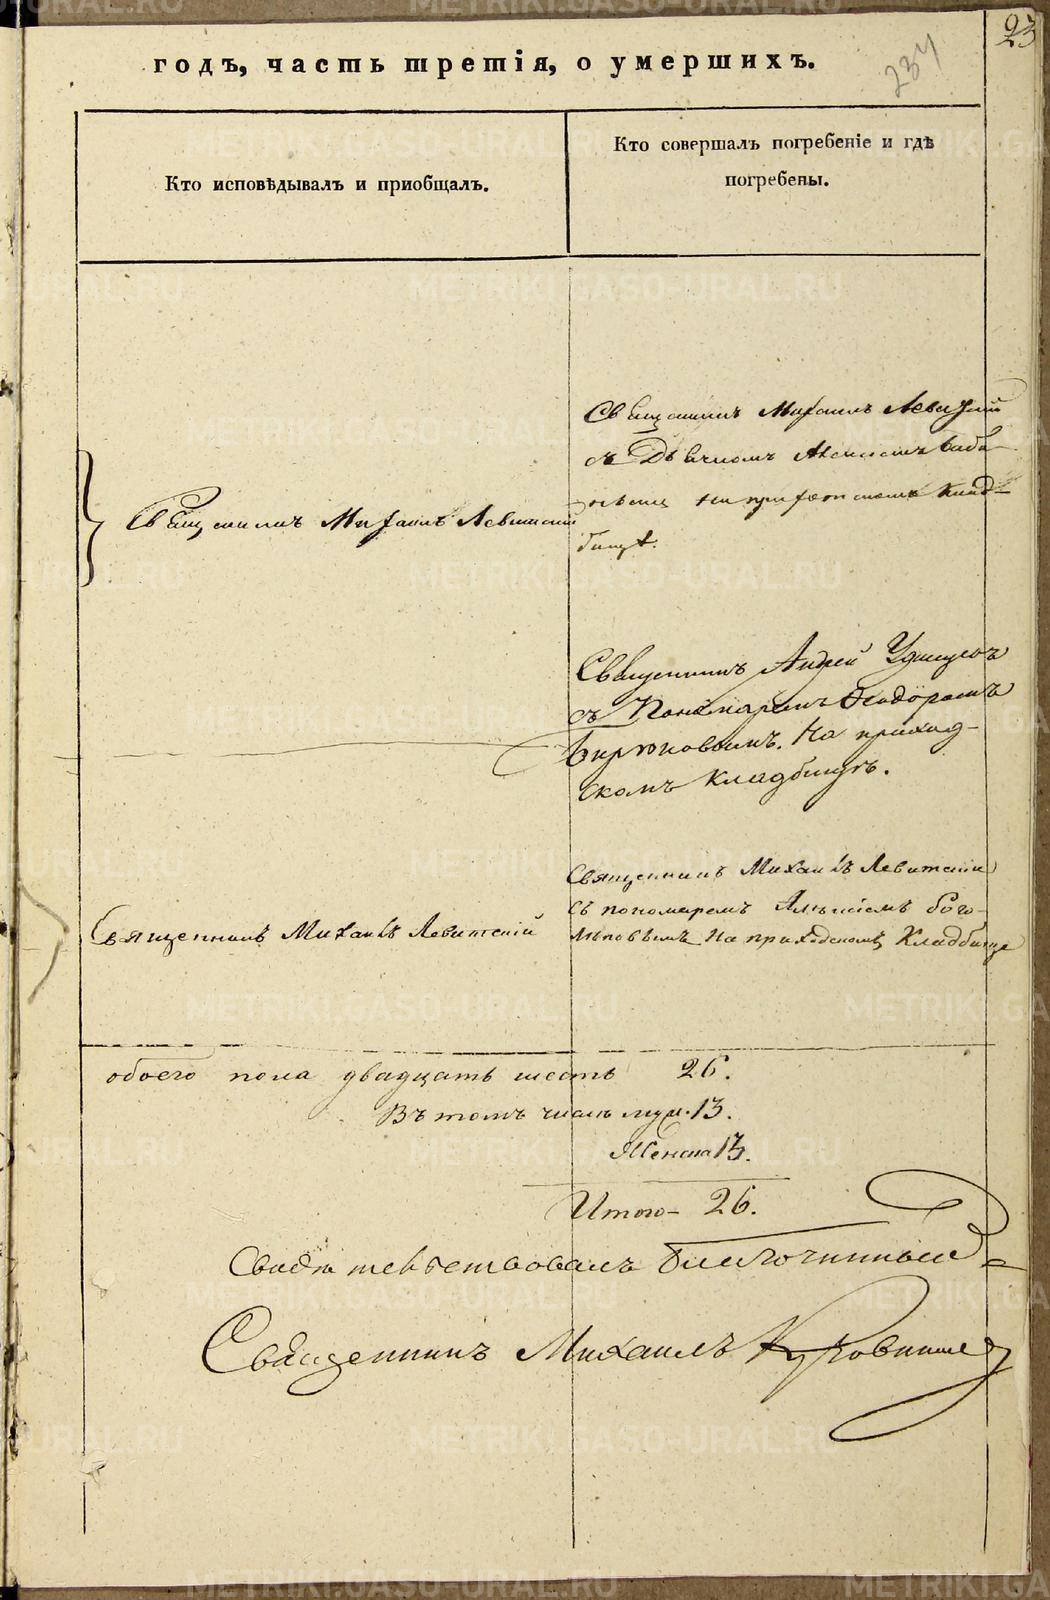 23
237
годъ, часть третія, о умершихъ.
Кто исповѣдывалъ и приобщалъ.
Кто совершалъ погребеніе и гдѣ
погребены.
Священникъ Михаилъ Левитскій
съ Дьячкомъ
на приходскомъ клад-
бищѣ.
Священникъ Михаилъ Левитскій
Священникъ Андрей Удинцовъ
съ Пономаремъ Феодоромъ
Бирюковымъ. На приход-
скомъ кладбищѣ.
Священникъ Михаилъ Левитскій
съ пономаремъ Алексіемъ Бого-
лѣповымъ на приходскомъ Кладбище
Священникъ Михаилъ Левитскій
обоего пола двадцать шесть 26.
Въ томъ числѣ муж. 13.
Женска 13.
Итого - 26.
Свидѣтельствовалъ Благочинный
Священникъ Михаилъ
METRIKI.GASO-URAL.RU